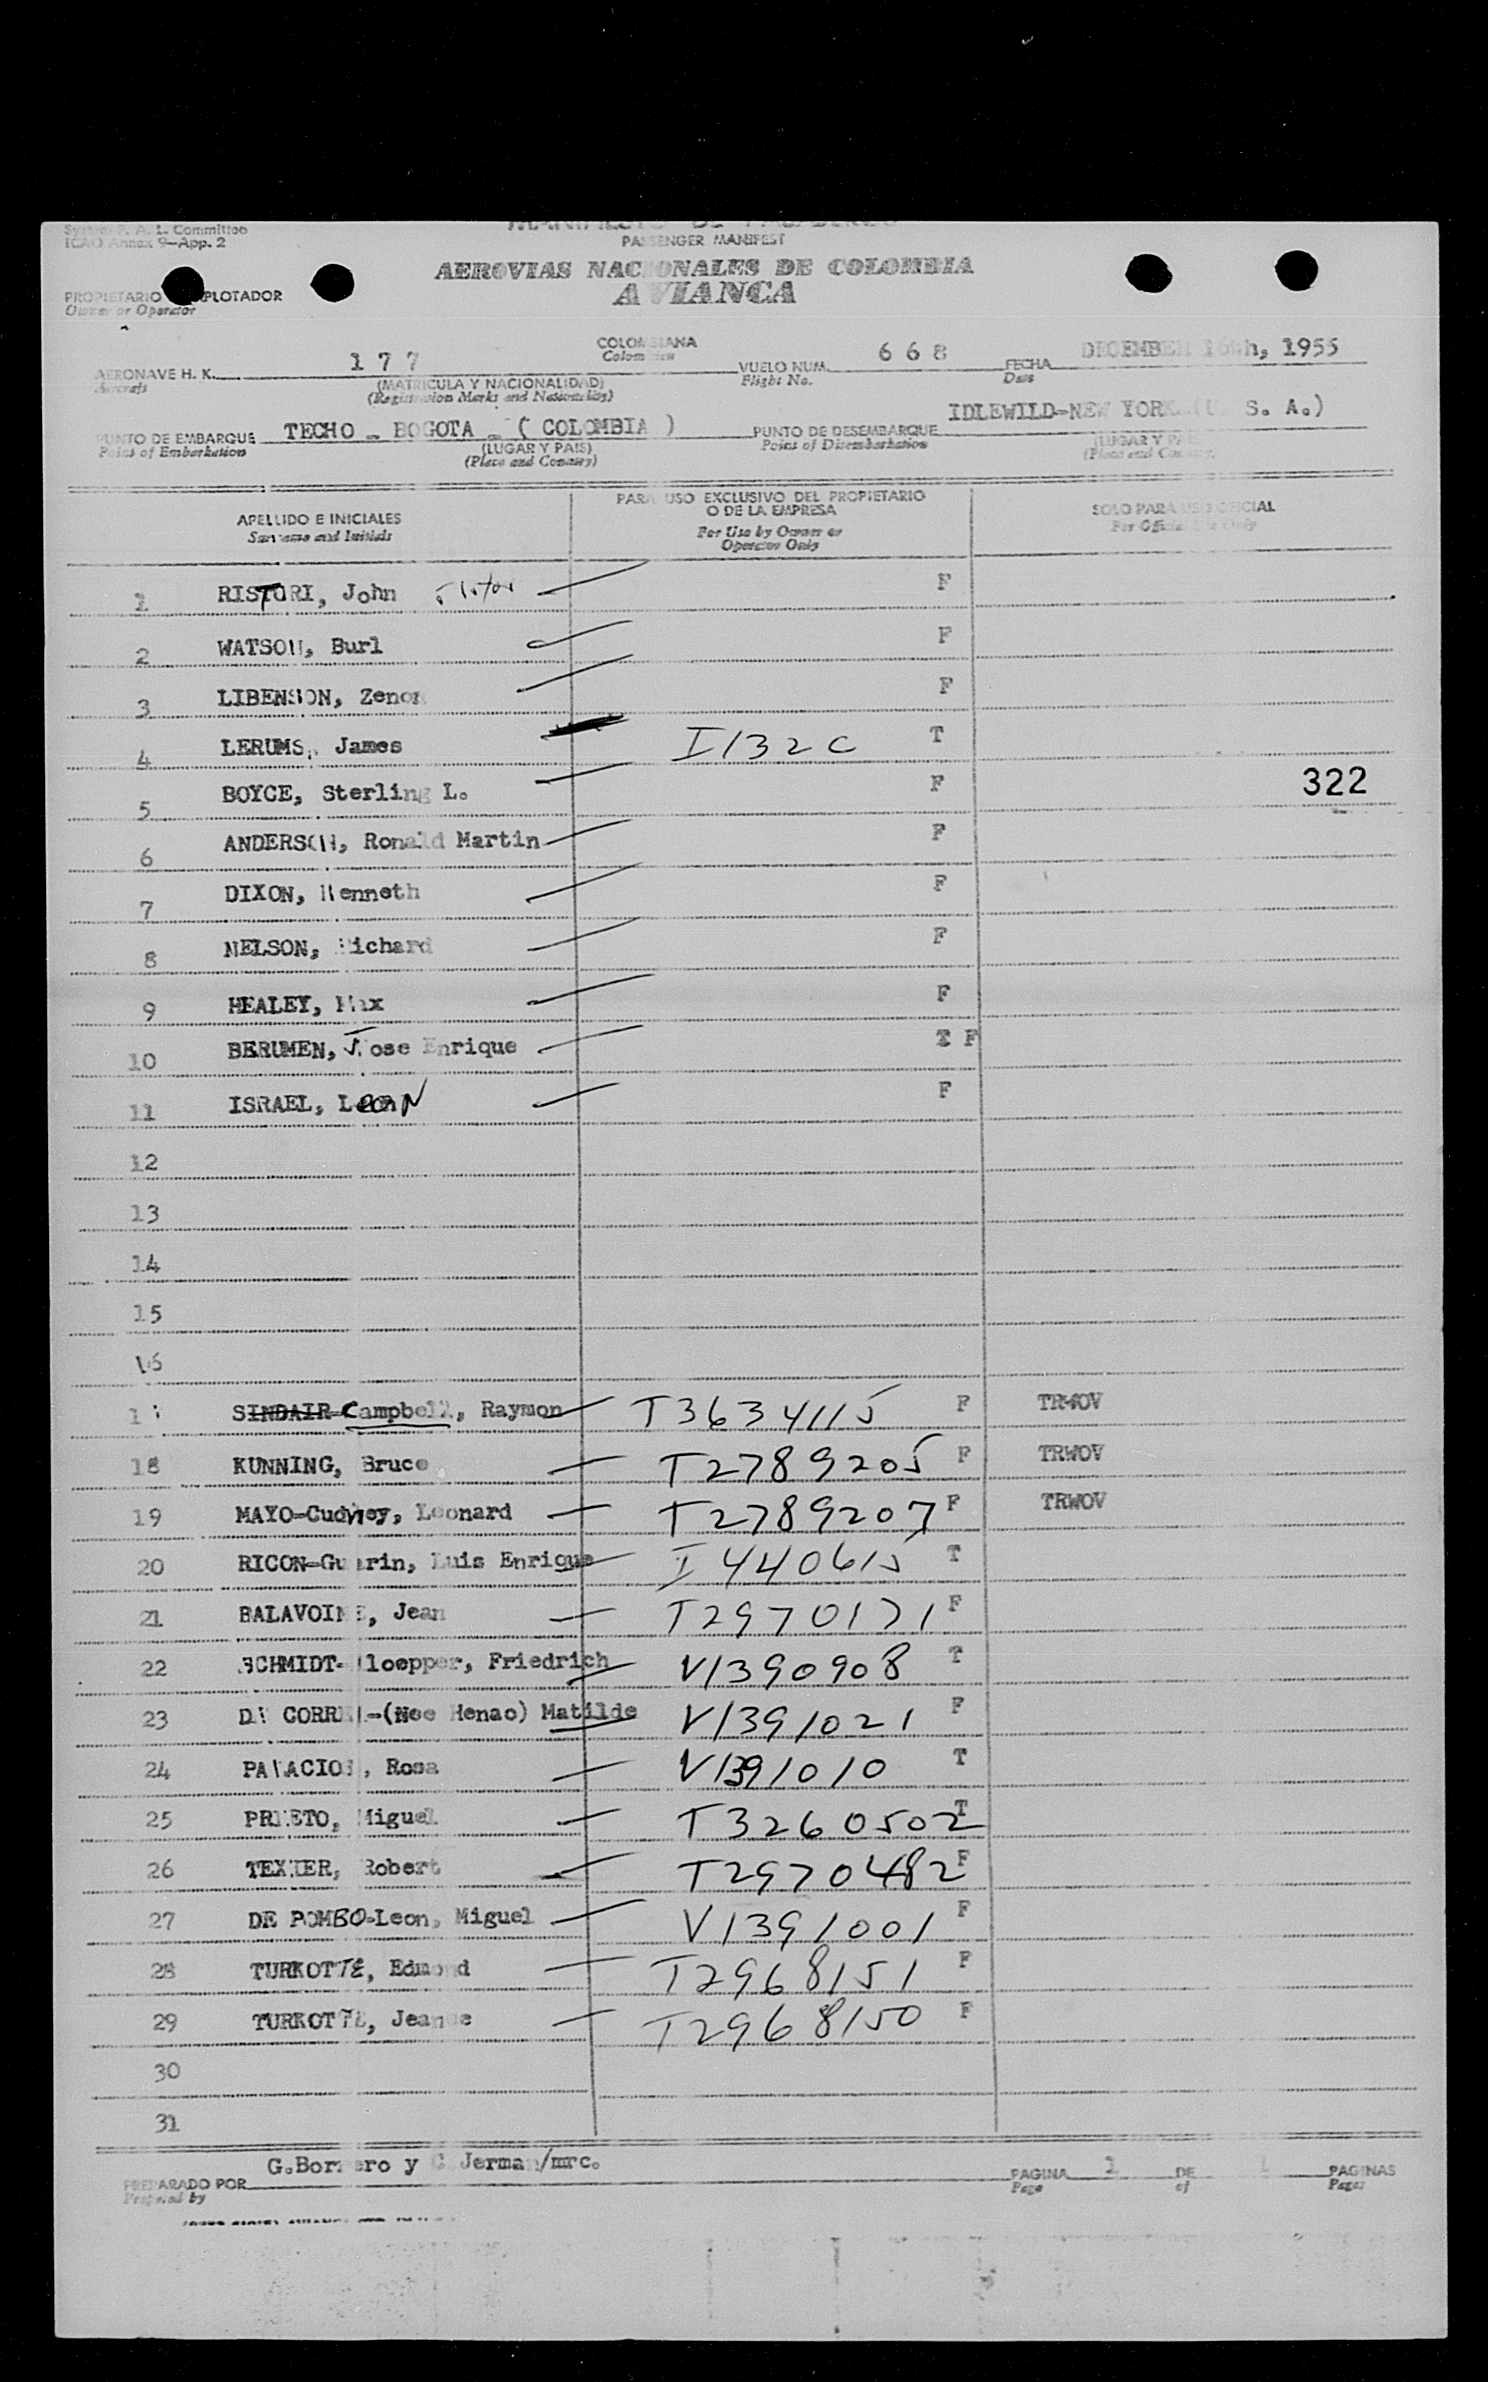 System F. A. L. Committee
ICAO Annex 9-App. 2
MANIFIESTO DE PASAJEROS
PASSENGER MANIFEST
AEROVIAS NACIONALES DE COLOMBIA
AVIANCA
PROPIETARIO EXPLOTADOR
Owner or Operator
AERONAVE H. K. 177 COLOMBIANA VUELO NUM. 668 FECHA DECEMBER 16th, 1955
Aircraft (MATRICULA Y NACIONALIDAD) Colombian Flight No. Date
(Registration Marks and Nationality)
PUNTO DE EMBARQUE TECHO - BOGOTA - ( COLOMBIA ) PUNTO DE DESEMBARQUE IDLEWILD-NEW YORK (U. S. A.)
Point of Embarkation (LUGAR Y PAIS) Point of Disembarkation (LUGAR Y PAIS)
(Place and Country) (Place and Country)
APELLIDO E INICIALES PARA USO EXCLUSIVO DEL PROPIETARIO O DE LA EMPRESA SOLO PARA USO OFICIAL
Surname and Initials For Use by Owner or Operator Only For Official Use Only
1 RISTORI, John F
2 WATSON, Burl F
3 LIBENSON, Zenon F
4 LERUMS, James I132C T
322
5 BOYCE, Sterling L. F
6 ANDERSON, Ronald Martin F
7 DIXON, Kenneth F
8 NELSON, Richard F
9 HEALEY, Max F
10 BERUMEN, Jose Enrique T F
11 ISRAEL, LeoN F
12
13
14
15
16
17 SINDAIR-Campbell, Raymon T3634115 F TRWOV
18 KUNNING, Bruce T2789205 F TRWOV
19 MAYO-Cudhey, Leonard T2789207 F TRWOV
20 RICON-Guerin, Luis Enrique I440615 T
21 BALAVOINE, Jean T2970171 F
22 SCHMIDT-Kloepper, Friedrich V1390908 T
23 DE (Nee Henao) Matilde V1391021 F
24 PALACIOS, Rosa V1391010 T
25 PRIETO, Miguel T3260502 T
26 TEXIER, Robert T2970482 F
27 DE POMBO-Leon, Miguel V1391001 F
28 TURKOTTE, Edmond T2968151 F
29 TURKOTTE, Jeanne T2968150 F
30
31
PREPARADO POR G.Borrero y C Jerman/mrc. PAGINA 1 DE 1 PAGINAS
Prepared by Page of Pages